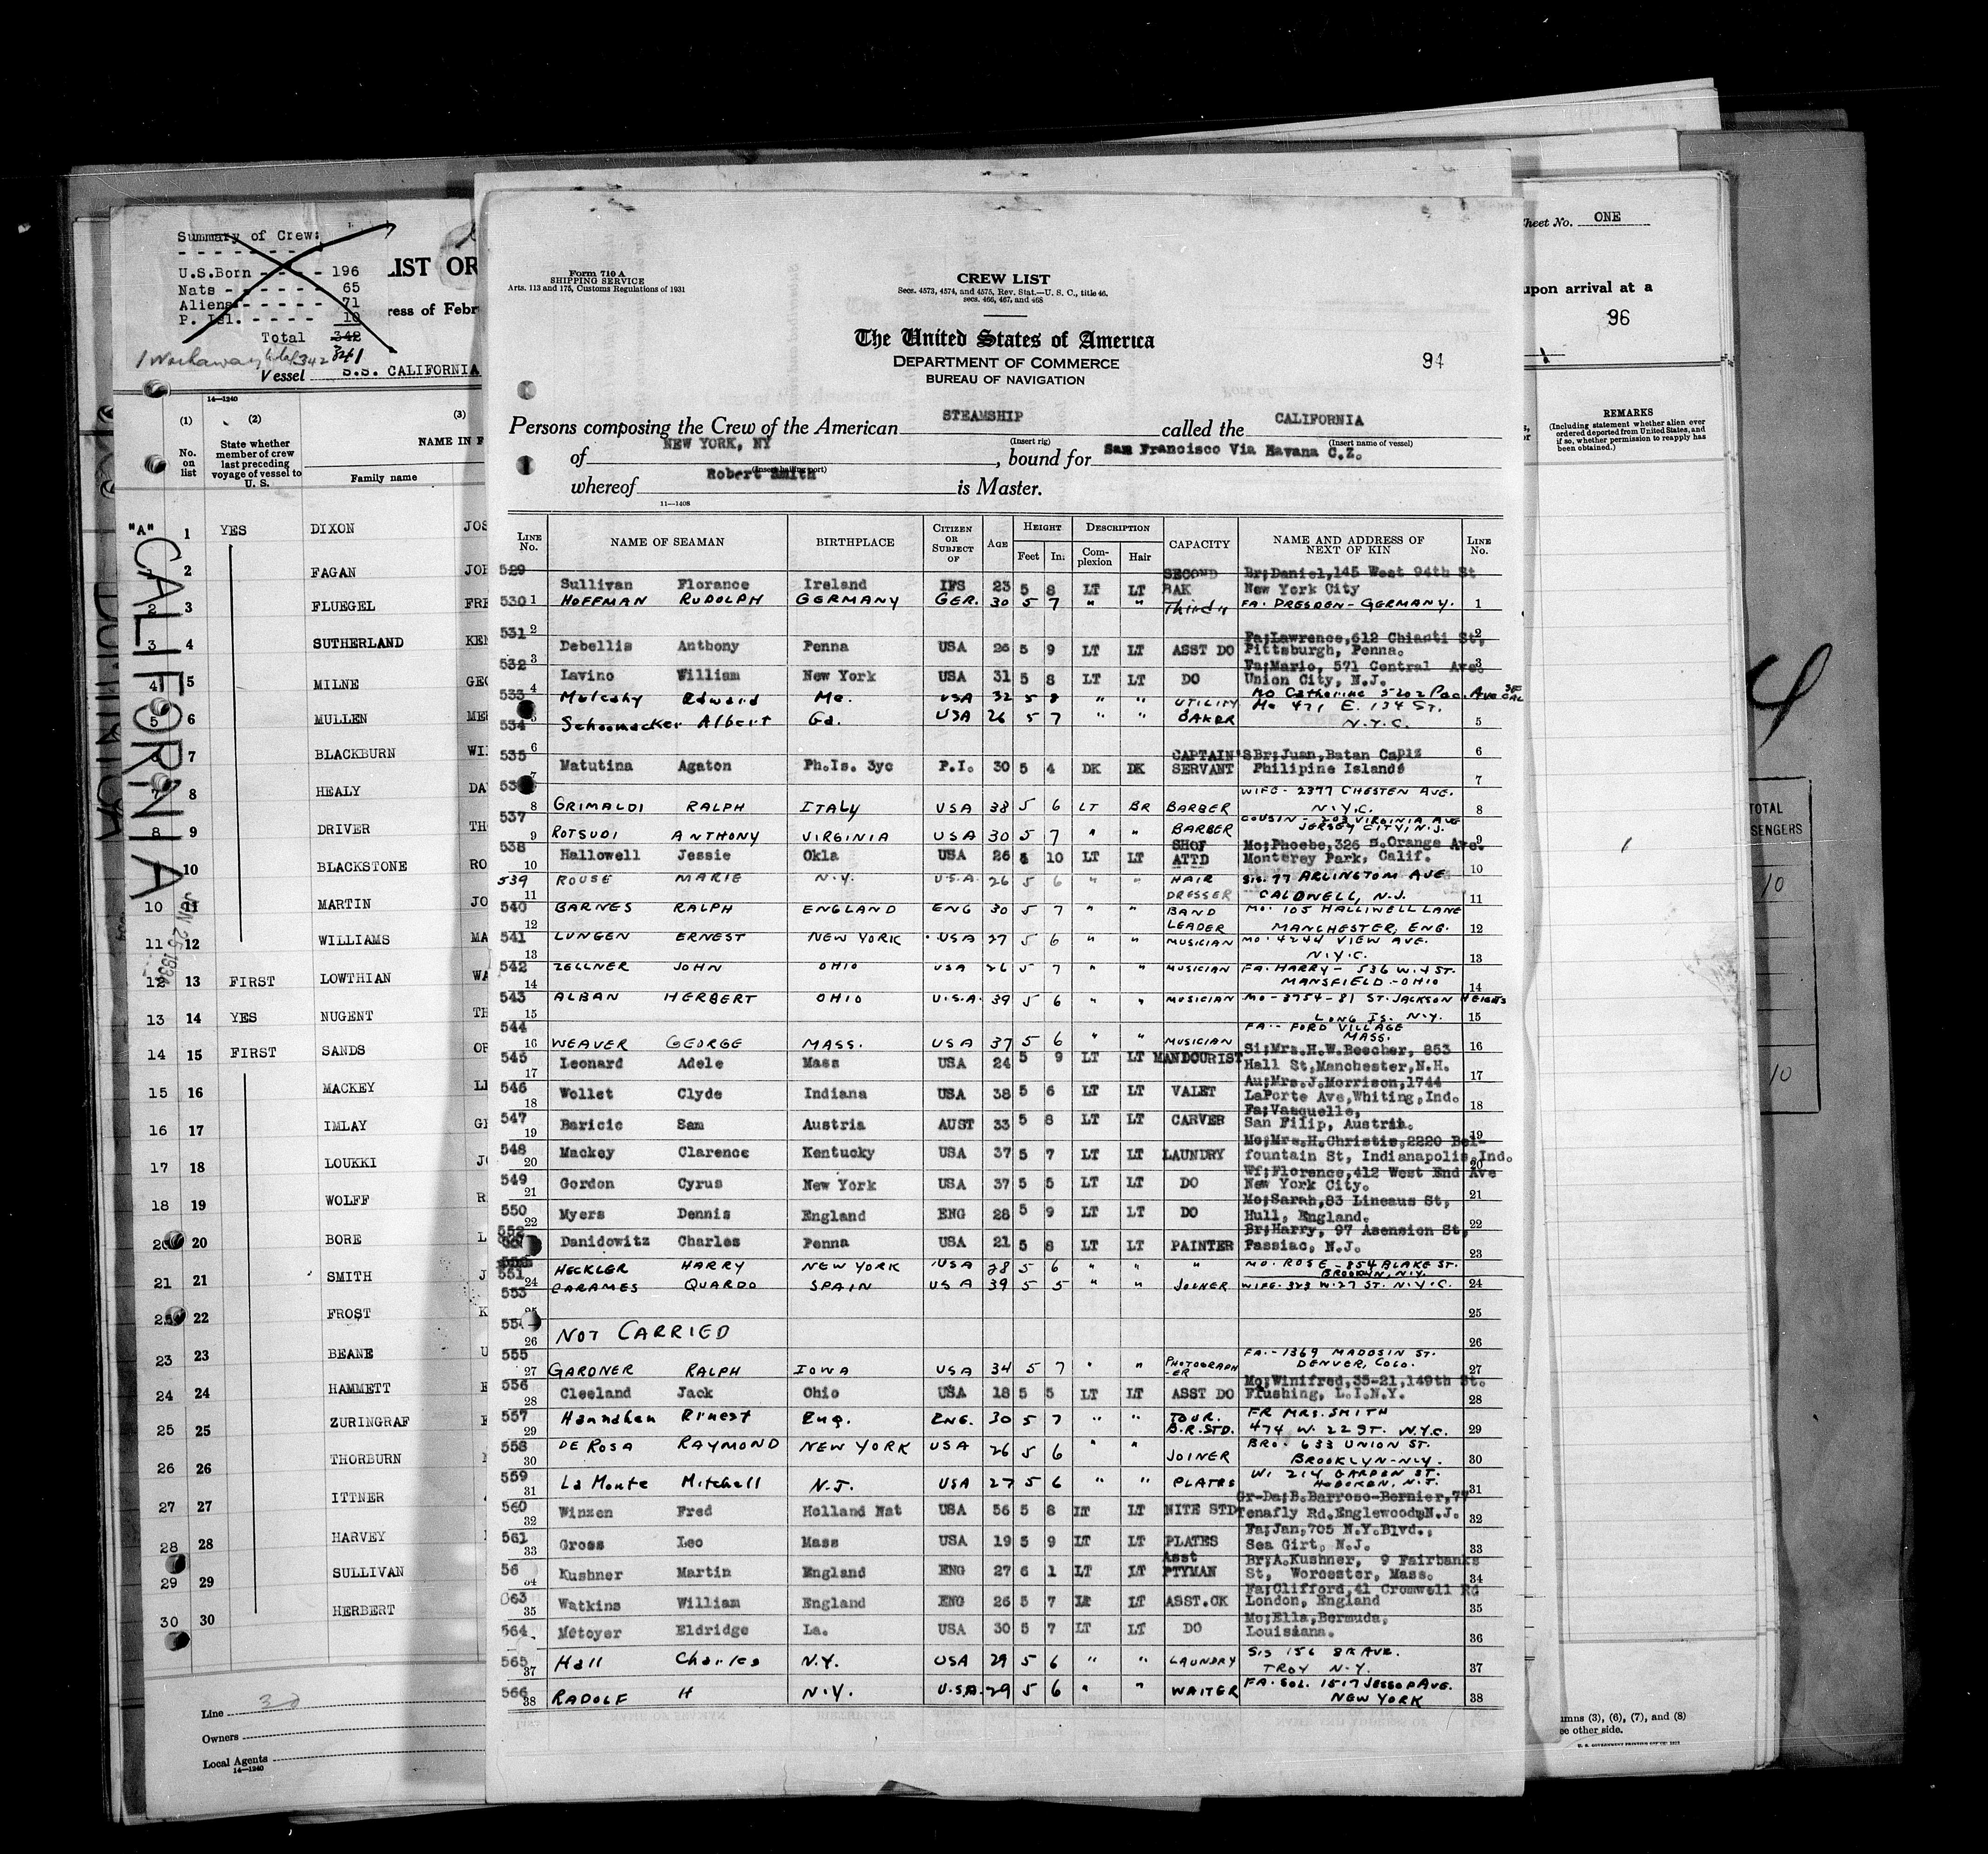 Summary of Crew:
U.S.Born - - - - 196
Nats - - - - - - 65
Aliens - - - - - 71
P. Isl. - - - - 10
Total 342
341
LIST OR
ress of Febr
Vessel S.S. CALIFORNIA
14—1240
(1) (2) (3)
No. on list
State whether member of crew last preceding voyage of vessel to U. S.
NAME IN F
Family name
"A"
CALIFORNIA
JAN 25 1934
1 YES DIXON JOS
1 2 FAGAN JOH
2 3 FLUEGEL FRE
3 4 SUTHERLAND KEN
4 5 MILNE GEO
5 6 MULLEN MER
7 BLACKBURN WI
7 8 HEALY DA
8 9 DRIVER TH
10 BLACKSTONE RO
10 11 MARTIN JO
11 12 WILLIAMS MA
12 13 FIRST LOWTHIAN WA
13 14 YES NUGENT TH
14 15 FIRST SANDS
15 16 MACKEY
16 17 IMLAY
17 18 LOUKKI
18 19 WOLFF
20 20 BORE
21 21 SMITH
22 FROST
23 23 BEANE
24 24 HAMMETT
25 25 ZURINGRAF
26 26 THORBURN
27 27 ITTNER
28 28 HARVEY
29 29 SULLIVAN
30 30 HERBERT
Line 30
Owners
Local Agents
14—1240
Form 710 A
SHIPPING SERVICE
Arts. 113 and 175, Customs Regulations of 1931
CREW LIST
Secs. 4573, 4574, and 4575, Rev. Stat.—U. S. C., title 46,
secs. 466, 467, and 468
The United States of America
DEPARTMENT OF COMMERCE
BUREAU OF NAVIGATION
94
Persons composing the Crew of the American STEAMSHIP called the CALIFORNIA
(Insert rig) (Insert name of vessel)
of NEW YORK, NY, bound for San Francisco Via Havana C.Z.
(Insert hailing port)
whereof Robert Smith is Master.
11—1408
LINE No. NAME OF SEAMAN BIRTHPLACE CITIZEN OR SUBJECT OF AGE HEIGHT Feet In. DESCRIPTION Complexion Hair CAPACITY NAME AND ADDRESS OF NEXT OF KIN LINE No.
529 Sullivan Florance Ireland IFS 23 5 8 LT LT SECOND BAK Br;Daniel,145 West 94th St New York City
530 1 HOFFMAN RUDOLPH GERMANY GER. 30 5 7 " " Third " FA. DRESDEN - GERMANY. 1
531 2 Debellis Anthony Penna USA 26 5 9 LT LT ASST DO Fa;Lawrence,612 Chianti St, Pittsburgh, Penna. 2
532 3 Iavino William New York USA 31 5 8 LT LT DO Fa;Mario, 571 Central Ave Union City, N.J. 3
533 4 Mulcahy Edward Me. USA 32 5 8 " " UTILITY Mo Catherine 5202 Pac. Ave SF CAL
534 5 Schoomacker Albert Ga. USA 26 5 7 " " BAKER Mo 471 E. 134 ST. N.Y.C. 5
535 6 Matutina Agaton Ph.Is. 3yc P.I. 30 5 4 DK DK CAPTAIN'S SERVANT Br;Juan,Batan Capiz Philipine Islands 6
7 7
8 GRIMALDI RALPH ITALY USA 38 5 6 LT BR BARBER WIFE - 2377 CHESTEN AVE. N.Y.C. 8
537 9 ROTSUDI ANTHONY VIRGINIA USA 30 5 7 " " BARBER COUSIN - 203 VIRGINIA AVE JERSEY CITY, N.J. 9
538 10 Hallowell Jessie Okla USA 26 5 10 LT LT SHOP ATTD Mo;Phoebe,326 S.Orange Ave. Monterey Park, Calif. 10
539 11 ROUSE MARIE N.Y. U.S.A. 26 5 6 " " HAIR DRESSER SIS. 77 ARLINGTON AVE CALDWELL, N.J. 11
540 12 BARNES RALPH ENGLAND ENG 30 5 7 " " BAND LEADER MO. 105 HALLIWELL LANE MANCHESTER, ENG. 12
541 13 LUNGEN ERNEST NEW YORK USA 27 5 6 " " MUSICIAN MO. 4244 VIEW AVE. N.Y.C. 13
542 14 ZELLNER JOHN OHIO USA 26 5 7 " " MUSICIAN FA. HARRY - 536 W. 4 ST. MANSFIELD - OHIO 14
543 15 ALBAN HERBERT OHIO U.S.A. 39 5 6 " " MUSICIAN MO - 3754 - 81 ST. JACKSON HEIGHTS LONG IS. N.Y. 15
544 16 WEAVER GEORGE MASS. USA 37 5 6 " " MUSICIAN FA - FORD VILLAGE MASS. 16
545 17 Leonard Adele Mass USA 24 5 9 LT LT MANDCURIST Si;Mrs.H.W.Beecher, 853 Hall St,Manchester,N.H. 17
546 18 Wollet Clyde Indiana USA 38 5 6 LT LT VALET Au;Mrs.J.Morrison,1744 LaPorte Ave,Whiting,Ind. 18
547 19 Baricic Sam Austria AUST 33 5 8 LT LT CARVER Fa;Vasquelle, San Filip, Austria. 19
548 20 Mackey Clarence Kentucky USA 37 5 7 LT LT LAUNDRY Mo;Mrs.H.Christis,2220 Bel-fountain St, Indianapolis,Ind. 20
549 21 Gordon Cyrus New York USA 37 5 5 LT LT DO Wf;Florence,412 West End Ave New York City. 21
550 22 Myers Dennis England ENG 28 5 9 LT LT DO Mo;Sarah,83 Lineaus St, Hull, England. 22
552 Danidowitz Charles Penna USA 21 5 8 LT LT PAINTER Br;Harry, 97 Asension St, Passiac, N.J. 23
551 24 HECKLER HARRY NEW YORK USA 28 5 6 " " " MO. ROSE - 854 BLAKE ST. BROOKLYN, N.Y.
553 CARAMES QUARDO SPAIN USA 39 5 5 " " JOINER WIFE. 323 W. 27 ST. N.Y.C. 24
25 25
554 26 NOT CARRIED 26
555 27 GARDNER RALPH IOWA USA 34 5 7 " " PHOTOGRAPH-ER FA. - 1369 MADOSIN ST. DENVER, COLO. 27
556 28 Cleeland Jack Ohio USA 18 5 5 LT LT ASST DO Mo;Winifred,35-21,149th St. Flushing, L.I.N.Y. 28
557 29 Hannahan Ernest Eng. ENG. 30 5 7 " " TOUR. B.R. STD. FR MRS. SMITH 474 W. 22 ST. N.Y.C. 29
558 30 DE ROSA RAYMOND NEW YORK USA 26 5 6 " " JOINER BRO. 633 UNION ST. BROOKLYN - N.Y. 30
559 31 La Monte Mitchell N.J. USA 27 5 6 " " PLATES WI 214 GARDEN ST. HOBOKEN, N.J. 31
560 32 Winzen Fred Holland Nat USA 56 5 8 LT LT NITE STD Gr-Da;B.Barroso-Bernier,77 Tenafly Rd.Englewood,N.J. 32
561 33 Gross Leo Mass USA 19 5 9 LT LT PLATES Fa;Jan,705 N.Y.Blvd., Sea Girt, N.J. 33
56 34 Kushner Martin England ENG 27 6 1 LT LT Asst PTYMAN Br;A.Kushner, 9 Fairbanks St, Worcester, Mass. 34
563 35 Watkins William England ENG 26 5 7 LT LT ASST.CK Fa;Clifford,41 Cromwell Rd London, England 35
564 Metoyer Eldridge La. USA 30 5 7 LT LT DO Mo;Ella,Bermuda, Louisiana. 36
565 37 Hall Charles N.Y. USA 29 5 6 " " LAUNDRY SIS 156 8th AVE. TROY N.Y. 37
566 38 RADOLF H N.Y. U.S.A. 29 5 6 " " WAITER FA. SOL. 1517 Jessop AVE. NEW YORK 38
Sheet No. ONE
upon arrival at a
96
REMARKS
(Including statement whether alien ever ordered deported from United States, and if so, whether permission to reapply has been obtained.)
TOTAL
SENGERS
10
10
umns (3), (6), (7), and (8)
ee other side.